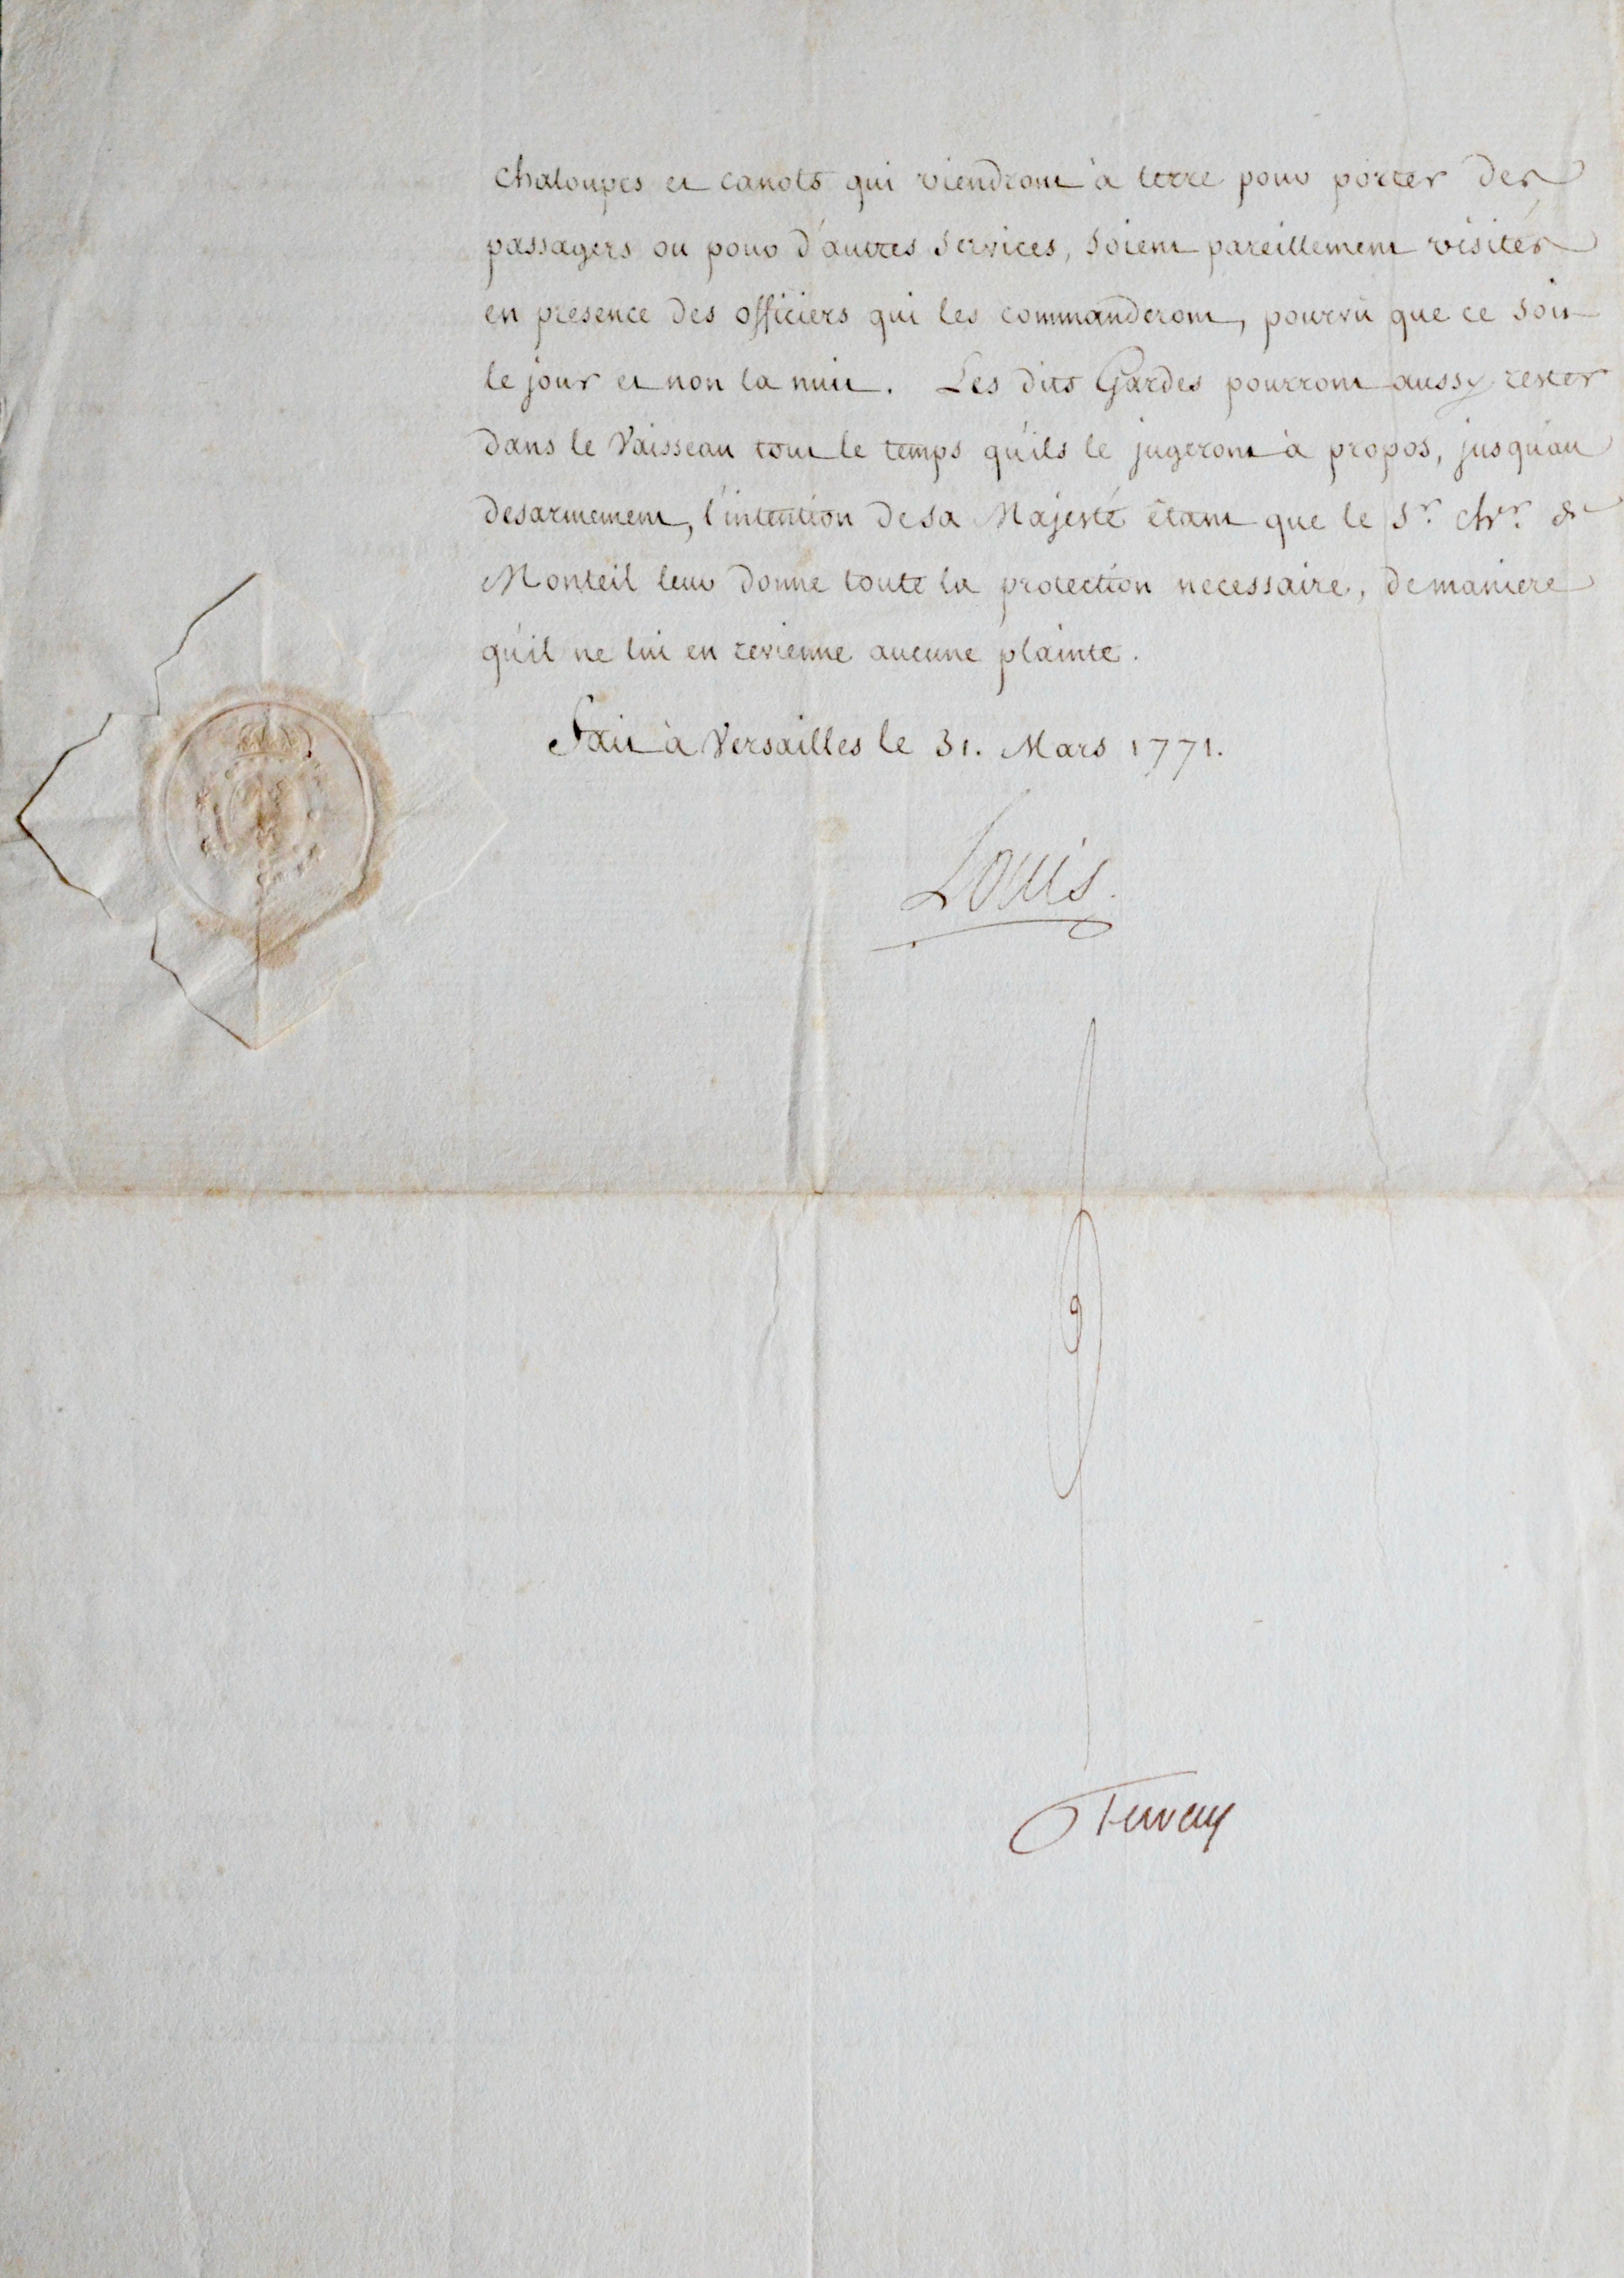 chaloupes et canots qui viendront à terre pour porter des
passagers ou pour d'autres services, soient pareillement visités
en presence des officiers qui les commanderont, pourvû que ce soit
le jour et non la nuit. Les dits Gardes pourront aussy rester
dans le Vaisseau tout le temps qu'ils le jugeront à propos, jusqu'au
desarmement, l'intention de sa Majesté étant que le S.r Ch.er de
Monteil leur donne toute la protection necessaire, de maniere
qu'il ne lui en revienne aucune plainte.
Fait à Versailles le 31. Mars 1771.
Louis.
Terray